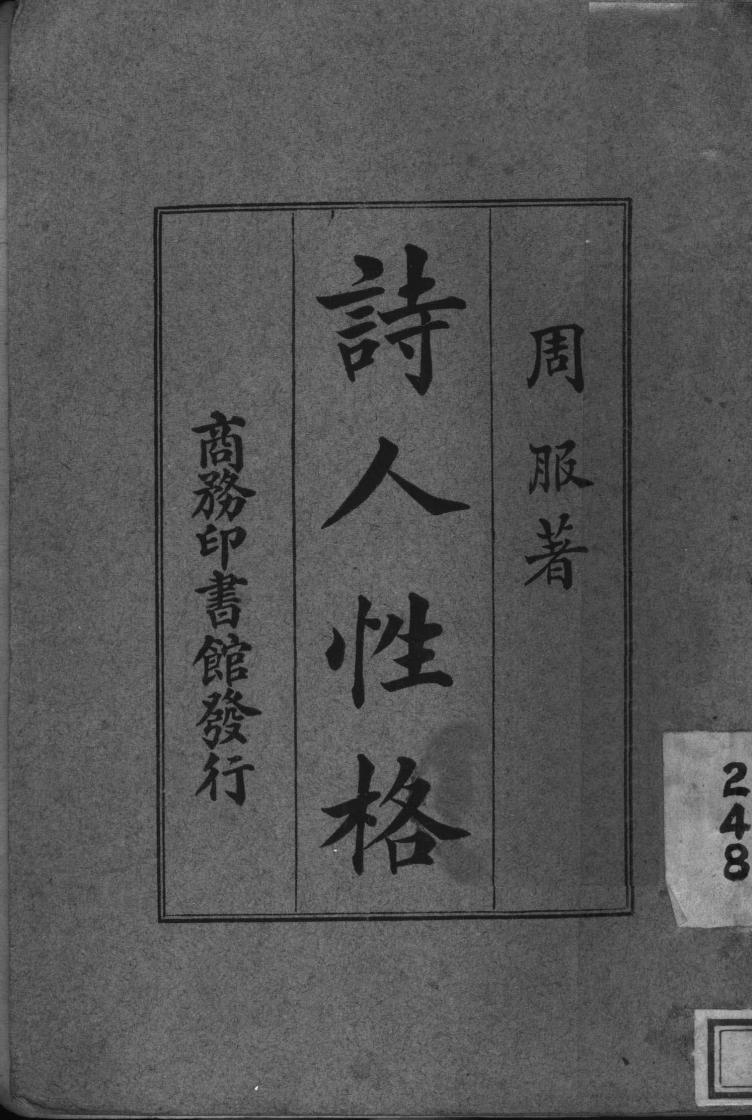 周服著
詩人性格
商務印書館發行
248